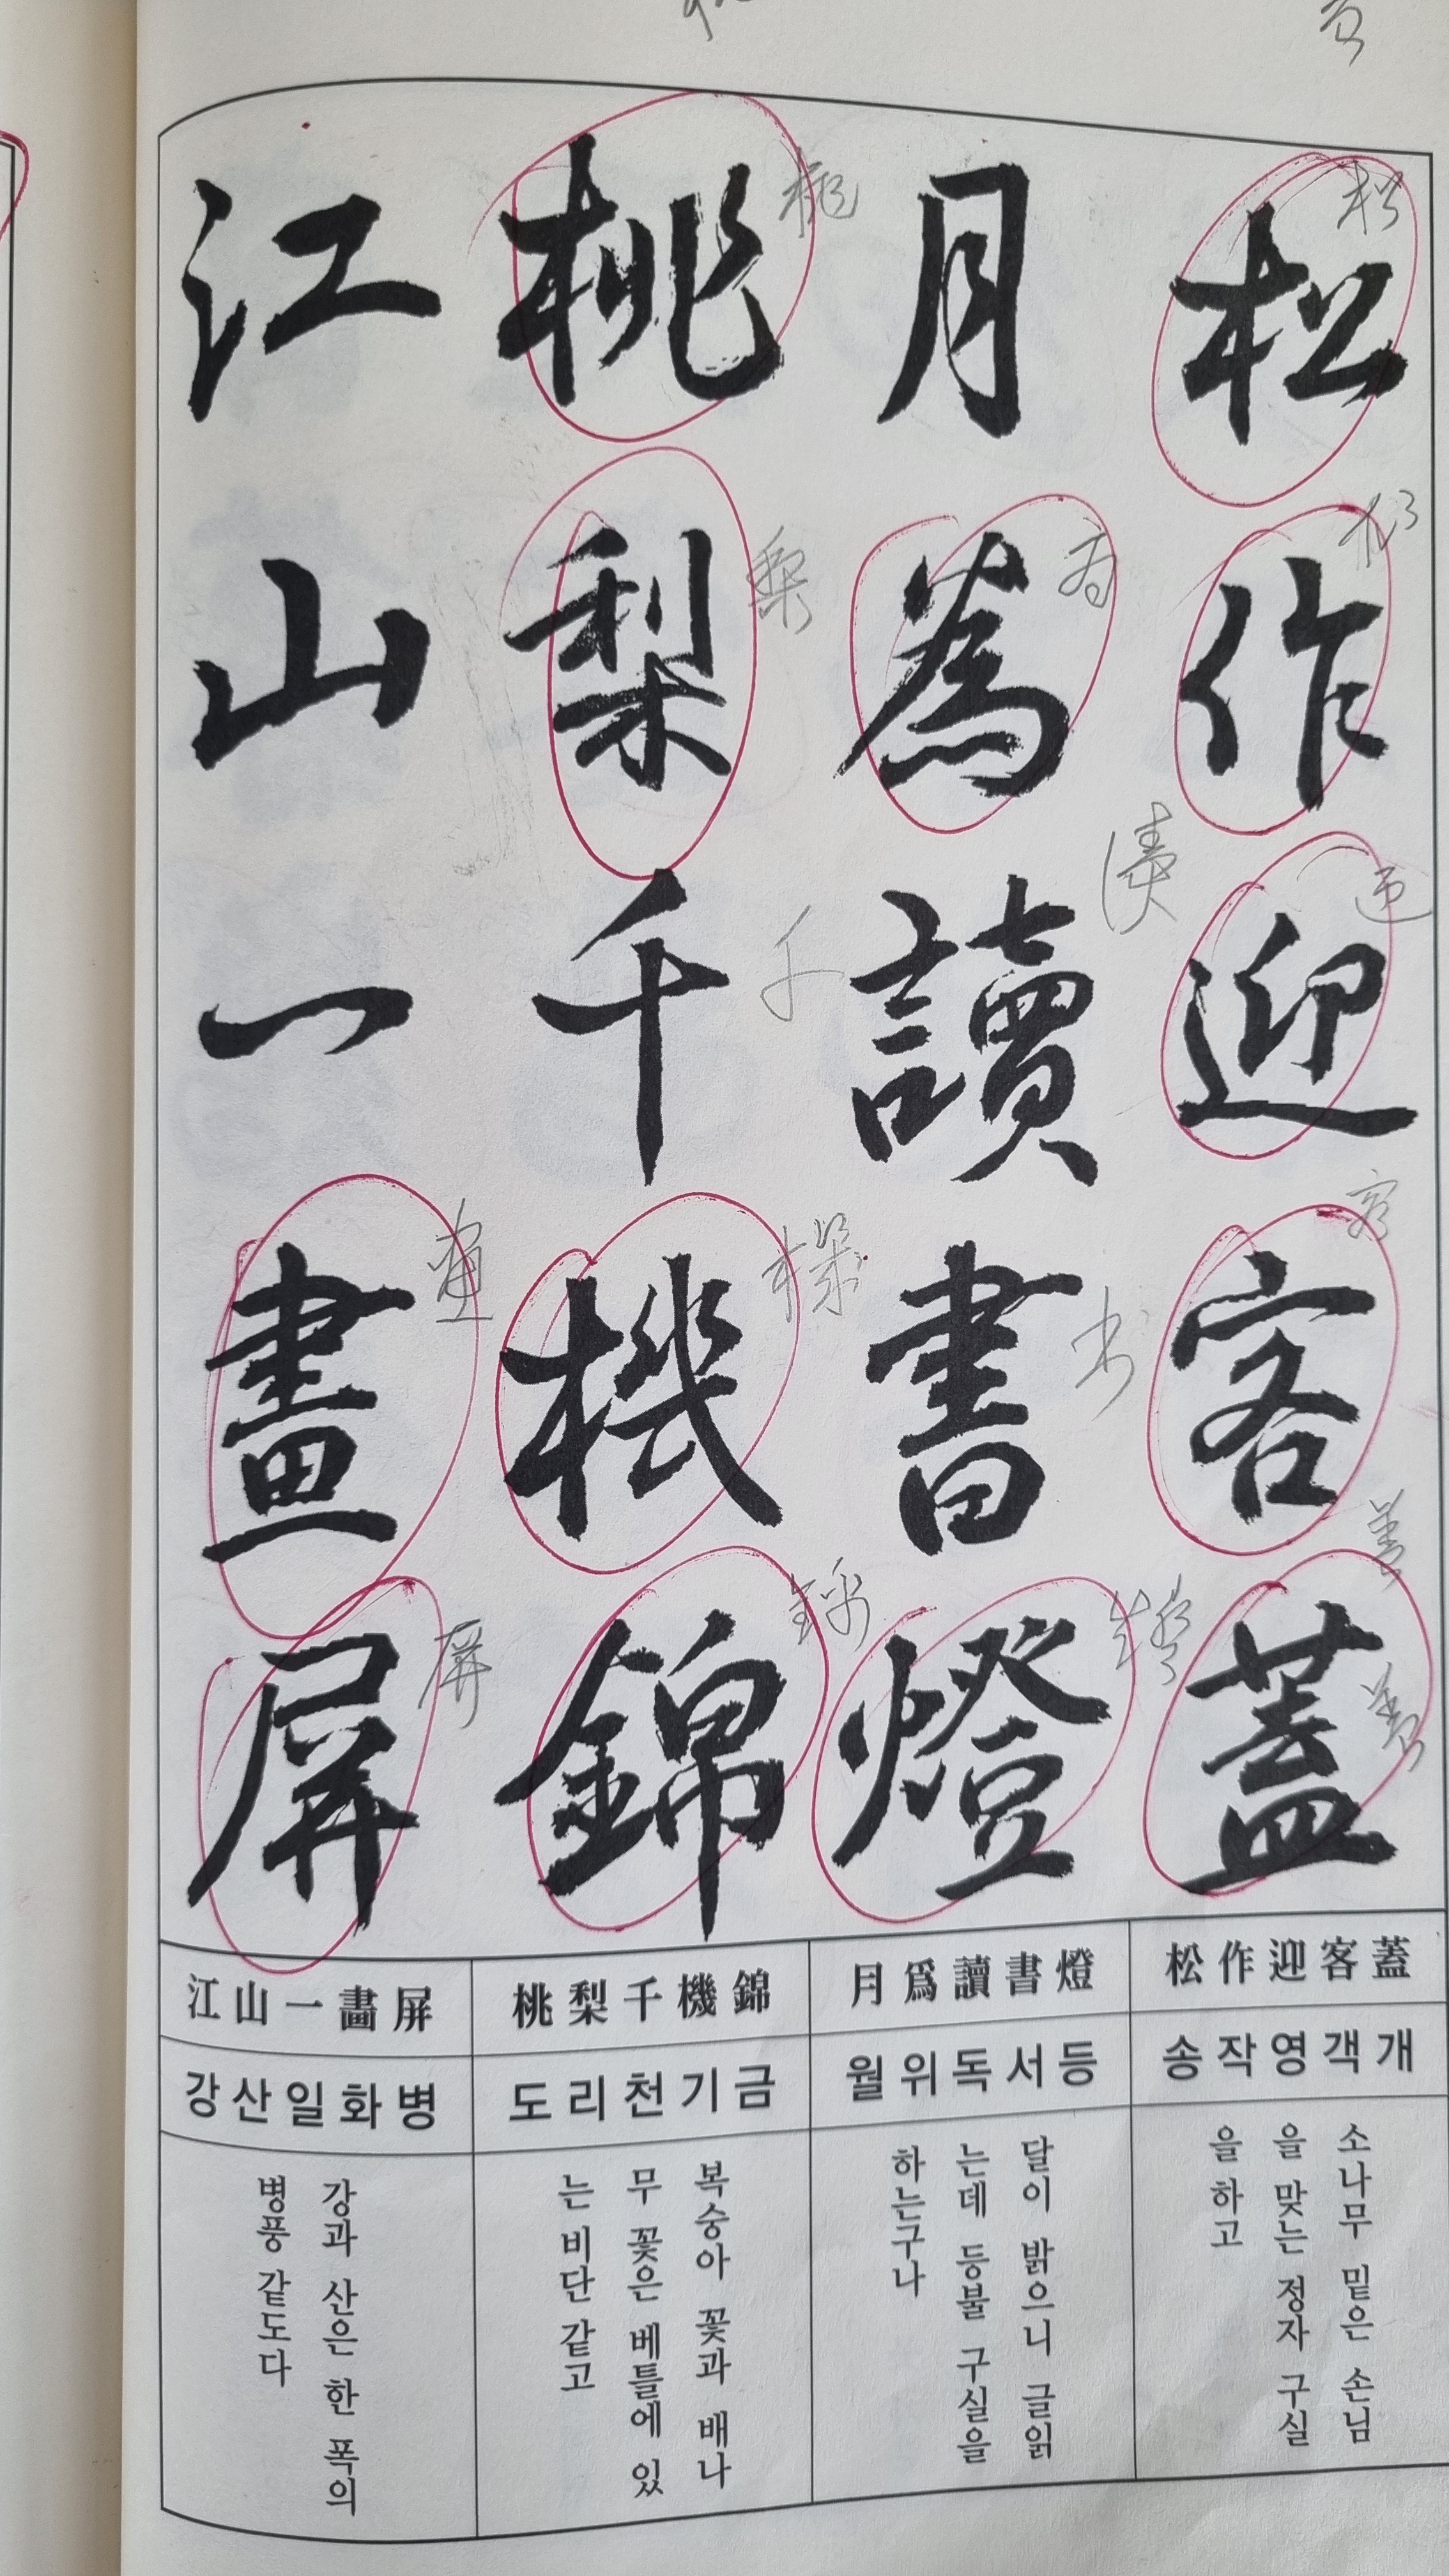 松作迎客蓋
月為讀書燈
桃梨千機錦
江山一畫屏
松作迎客蓋
송작영객개
소나무 밑은 손님
을 맞는 정자 구실
을 하고
月爲讀書燈
월위독서등
달이 밝으니 글읽
는데 등불 구실을
하는구나
桃梨千機錦
도리천기금
복숭아 꽃과 배나
무 꽃은 베틀에 있
는 비단 같고
江山一畵屏
강산일화병
강과 산은 한 폭의
병풍 같도다
松
桃
梨
千
书
屏